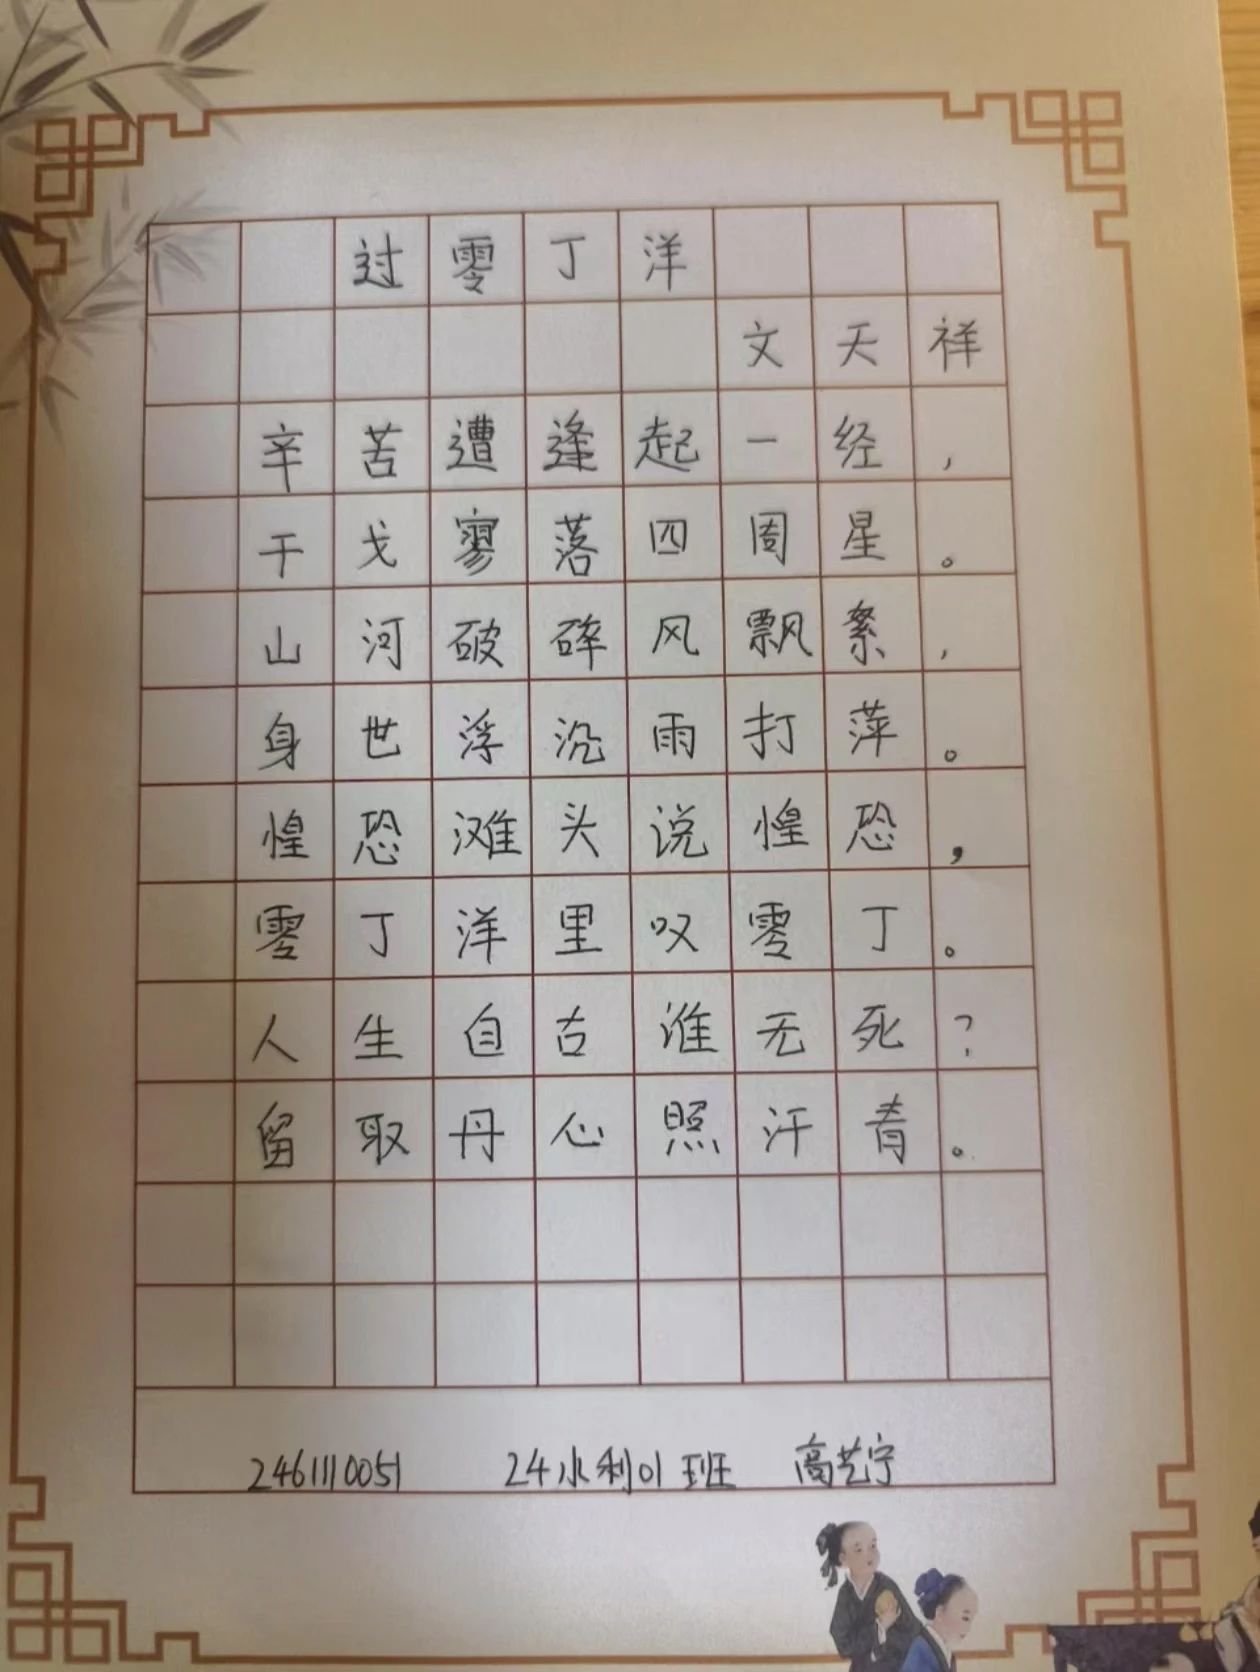 过零丁洋
文天祥
辛苦遭逢起一经，
干戈寥落四周星。
山河破碎风飘絮，
身世浮沉雨打萍。
惶恐滩头说惶恐，
零丁洋里叹零丁。
人生自古谁无死？
留取丹心照汗青。
2461110051 24水利01班 高艺宁